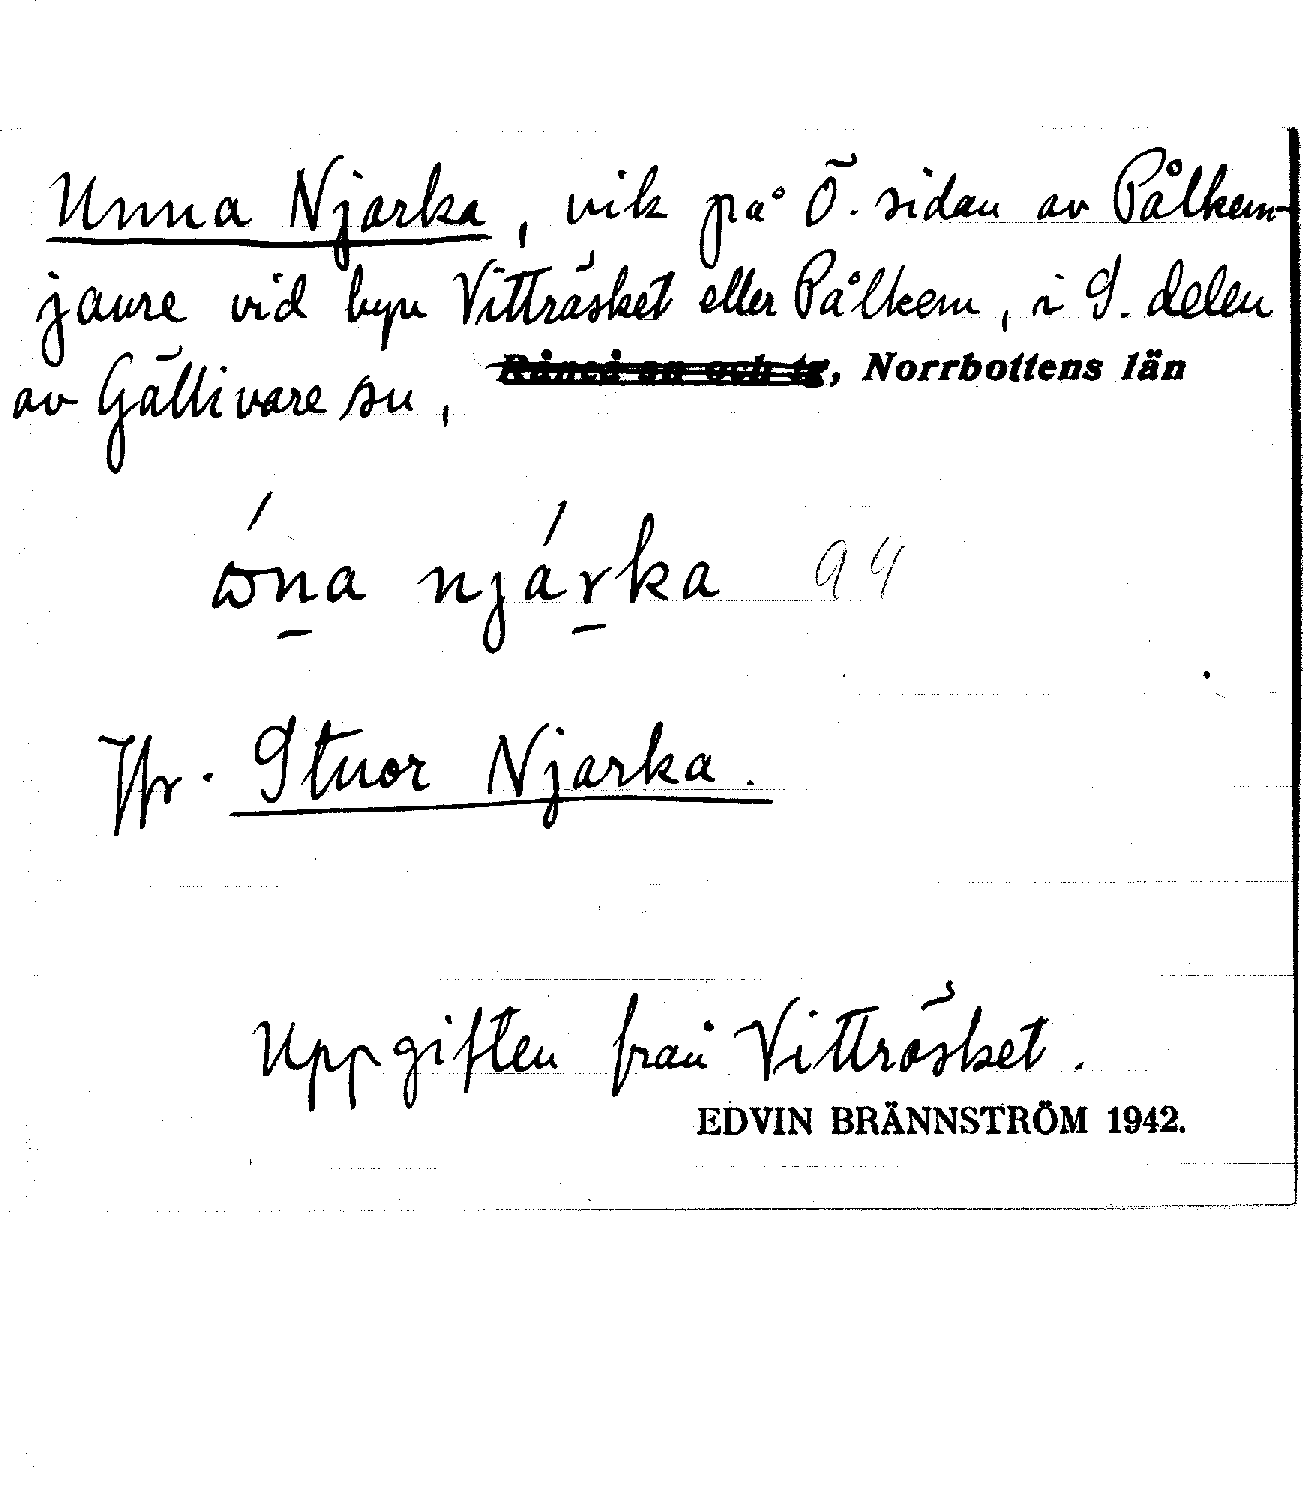 Unna Njarka, vik på Ö. sidan av Pålkem-
jaure vid byn Vitträsket eller Pålkem, i S. delen
av Gällivare sn, Råneå sn och tg, Norrbottens län
ó̱na njárka 94
Jfr. Stuor Njarka.
Uppgiften från Vitträsket.
EDVIN BRÄNNSTRÖM 1942.